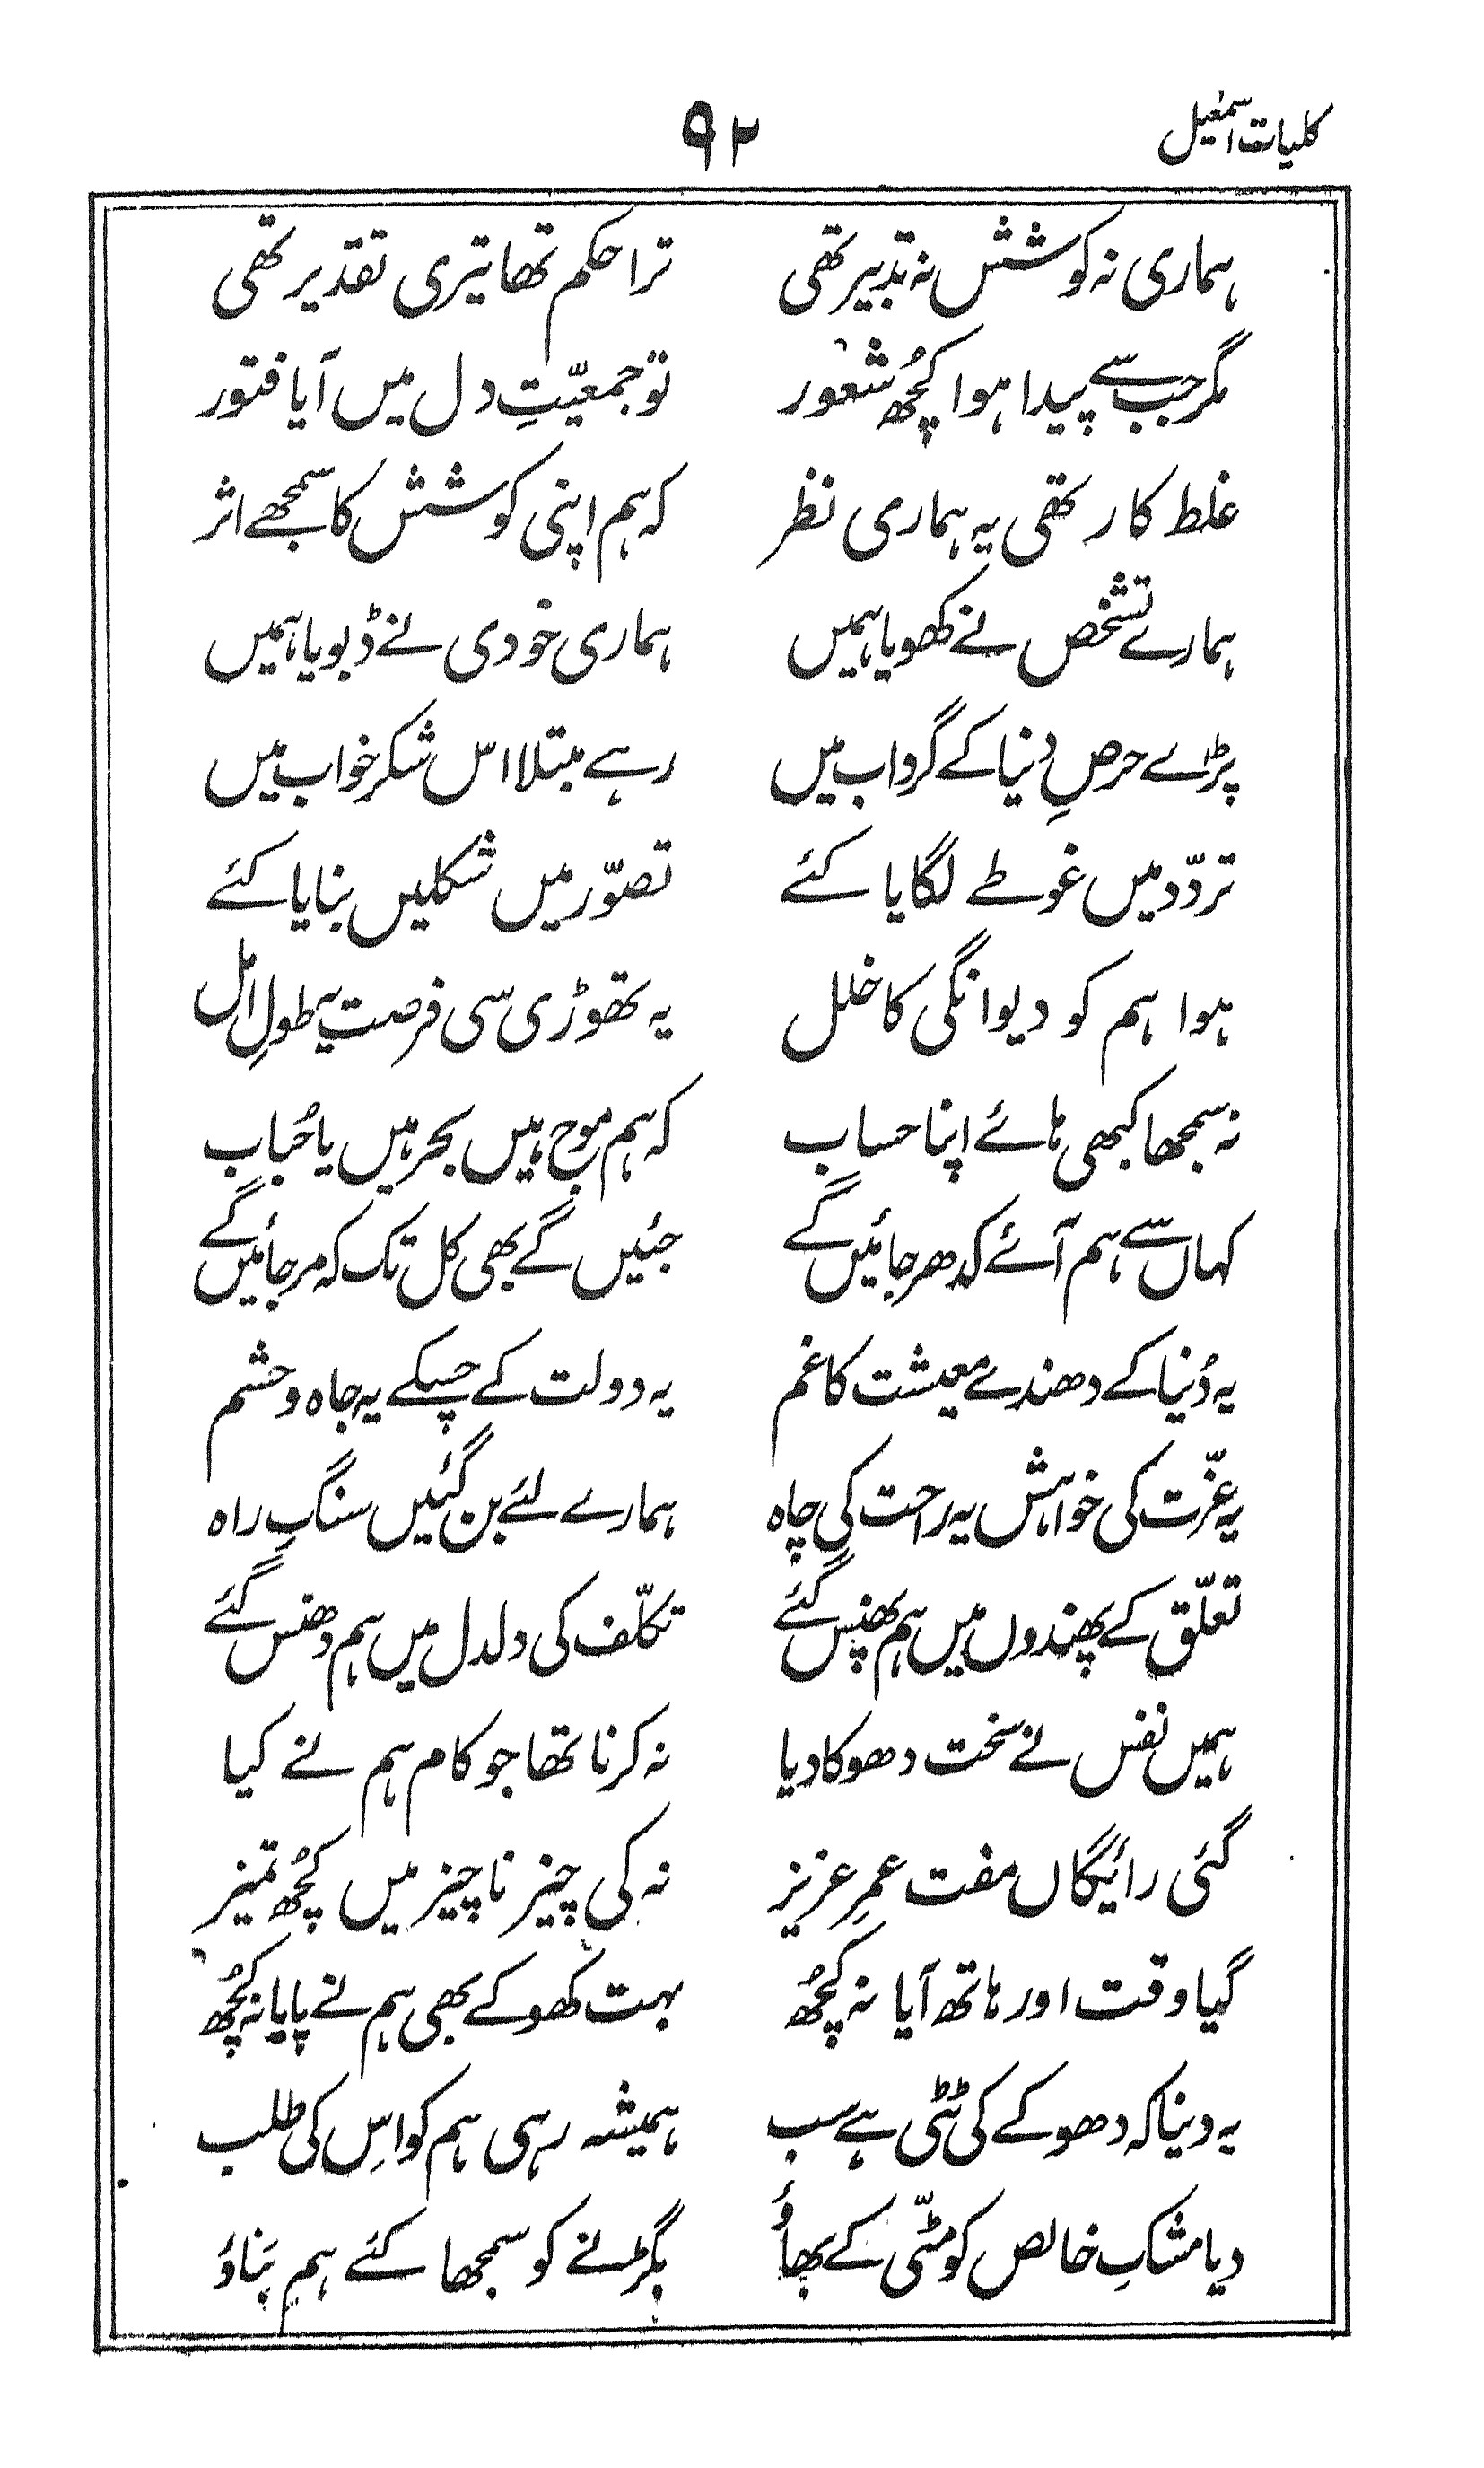 کلیات اسمٰعیل ۹۲
ہماری نہ کوشش نہ تدبیر تھی ترا حکم تھا تیری تقدیر تھی
مگر جب سے پیدا ہوا کچُھ شعور تو جمعیّتِ دل میں آیا فتور
غلط کار تھی یہ ہماری نظر کہ ہم اپنی کوشش کا سمجھے اثر
ہمارے تشخص نے کھویا ہمیں ہماری خودی نے ڈبویا ہمیں
پڑے حرصِ دنیا کے گرداب میں رہے مبتلا اس شکر خواب میں
تردّد میں غوطے لگایا کئے تصوّر میں شکلیں بنایا کئے
ہوا ہم کو دیوانگی کا خلل یہ تھوڑی سی فرصت یہ طولِ امل
نہ سمجھا کبھی ہائے اپنا حساب کہ ہم موج ہیں بحر ہیں یا حُباب
کہاں سے ہم آئے کدھر جائیں گے جئیں گے بھی کل تک کہ مر جائیں گے
یہ دُنیا کے دھندے معیشت کا غم یہ دولت کے چسکے یہ جاہ و حشم
یہ عزّت کی خواہش یہ راحت کی چاہ ہمارے لئے بن گئیں سنگِ راہ
تعلّق کے پھندوں میں ہم پھنس گئے تکلّف کی دلدل میں ہم دھنس گئے
ہمیں نفس نے سخت دھوکا دیا نہ کرنا تھا جو کام ہم نے کیا
گئی رائیگاں مفت عمرِ عزیز نہ کی چیز ناچیز میں کچُھ تمیز
گیا وقت اور ہاتھ آیا نہ کچُھ بہت کھو کے بھی ہم نے پایا نہ کچُھ
یہ دنیا کہ دھوکے کی ٹٹی ہے سب ہمیشہ رہی ہم کو اِس کی طلب
دیا مشکِ خالص کو مٹّی کے بھاؤ بگڑنے کو سمجھا کئے ہم بَناؤ